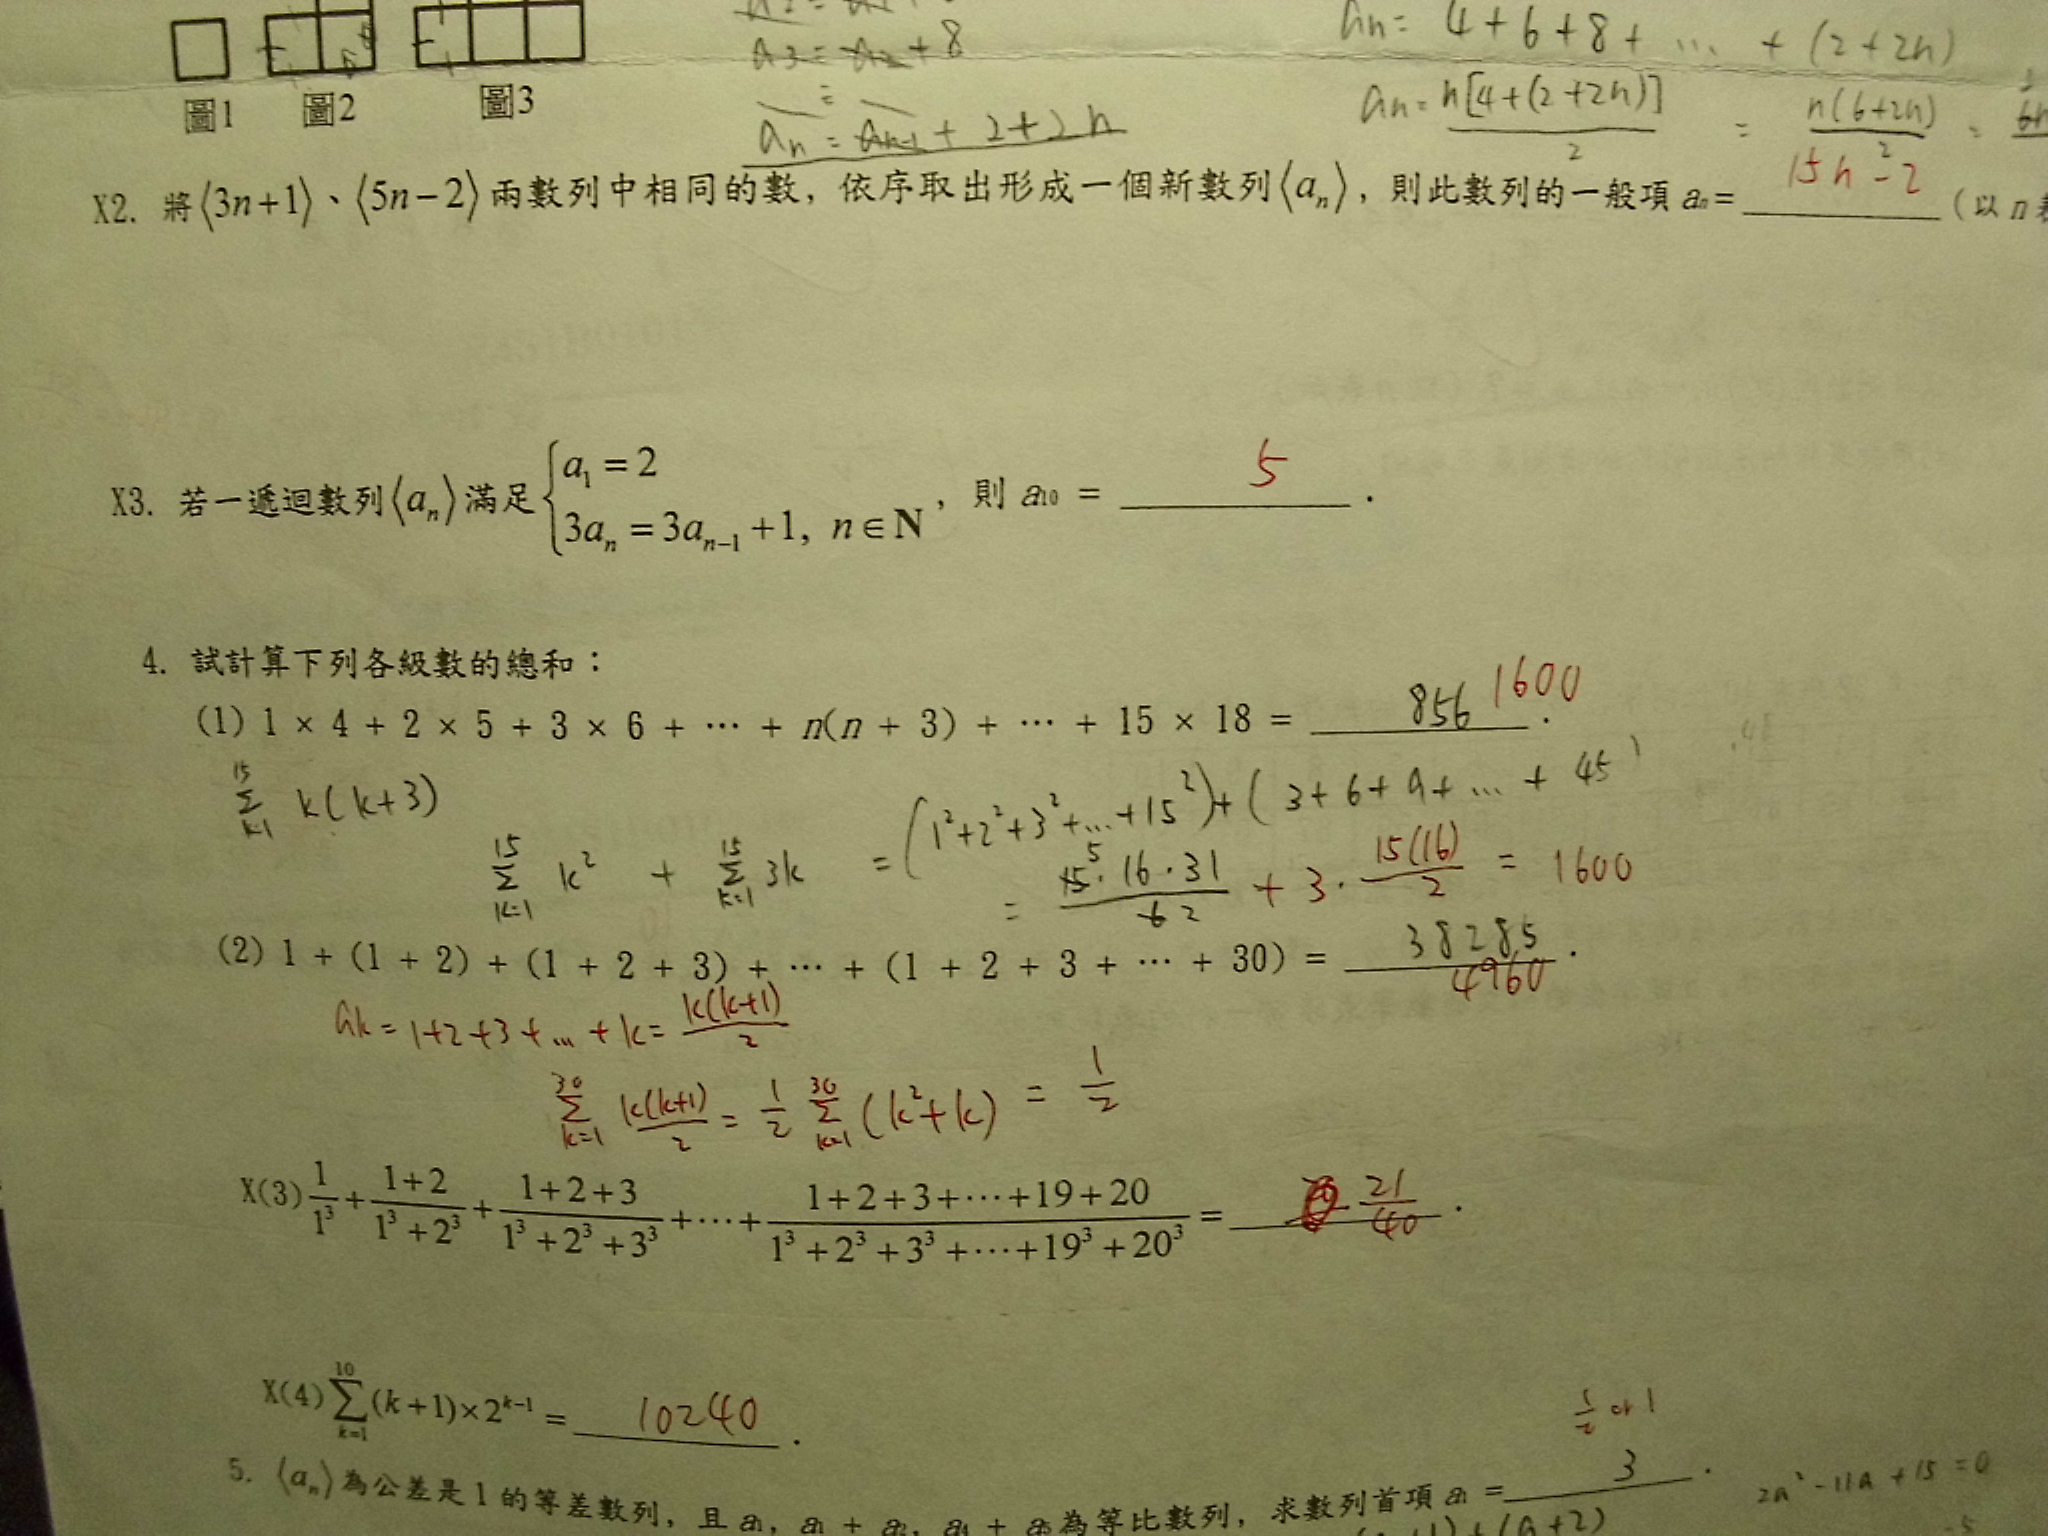 a3 = a2 + 8
an = an-1 + 2+2n
an = 4+6+8+ ... + (2+2n)
an = n[4+(2+2n)] / 2 = n(6+2n) / 2 =
圖1 圖2 圖3
X2. 將⟨3n+1⟩、⟨5n−2⟩兩數列中相同的數，依序取出形成一個新數列⟨aₙ⟩，則此數列的一般項 aₙ= 15n-2 (以 n
X3. 若一遞迴數列⟨aₙ⟩滿足 { a₁ = 2
3aₙ = 3aₙ₋₁ + 1, n ∈ N ，則 a₁₀ = 5 .
4. 試計算下列各級數的總和：
(1) 1 × 4 + 2 × 5 + 3 × 6 + ⋯ + n(n + 3) + ⋯ + 15 × 18 = 856 1600 .
15 Σ k=1 k(k+3)
15 Σ k=1 k² + 15 Σ k=1 3k = (1²+2²+3²+...+15²)+(3+6+9+...+45)
= 15·16·31 / 6 5 2 + 3·15(16)/2 = 1600
(2) 1 + (1 + 2) + (1 + 2 + 3) + ⋯ + (1 + 2 + 3 + ⋯ + 30) = 38285 .
4960
ak = 1+2+3+...+k = k(k+1)/2
30 Σ k=1 k(k+1)/2 = 1/2 30 Σ k=1 (k²+k) = 1/2
X(3) 1/1³ + (1+2)/(1³+2³) + (1+2+3)/(1³+2³+3³) + ⋯ + (1+2+3+⋯+19+20)/(1³+2³+3³+⋯+19³+20³) = 21/40 .
X(4) 10 Σ k=1 (k+1)×2ᵏ⁻¹ = 10240 .
1/2 or 1
5. ⟨aₙ⟩為公差是1的等差數列，且 a₁, a₁ + a₂, a₄ + a₅為等比數列，求數列首項 a₁ = 3 .
2a²-11a+15=0